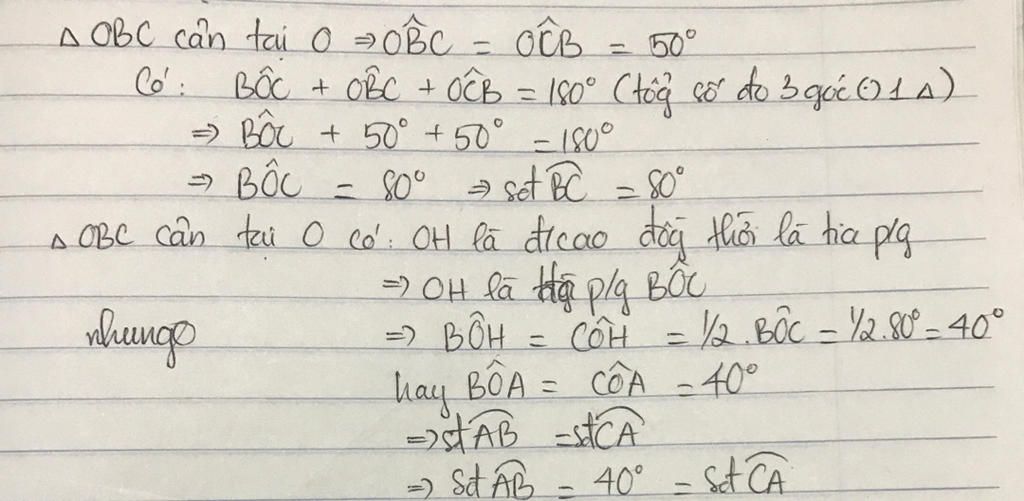 Δ OBC cân tại O ⇒ OB̂C = OĈB = 50°
Có: BÔC + OB̂C + OĈB = 180° (tổg số đo 3 góc (·) 1 Δ)
⇒ BÔC + 50° + 50° = 180°
⇒ BÔC = 80° ⇒ sđ B͡C = 80°
Δ OBC cân tại O có: OH là đ/cao đồg thời là tia p/g
⇒ OH là p/g BÔC
nhungo ⇒ BÔH = CÔH = 1/2 . BÔC = 1/2 . 80° = 40°
hay BÔA = CÔA = 40°
⇒ sđ A͡B = sđ C͡A
⇒ Sđ A͡B = 40° = Sđ C͡A